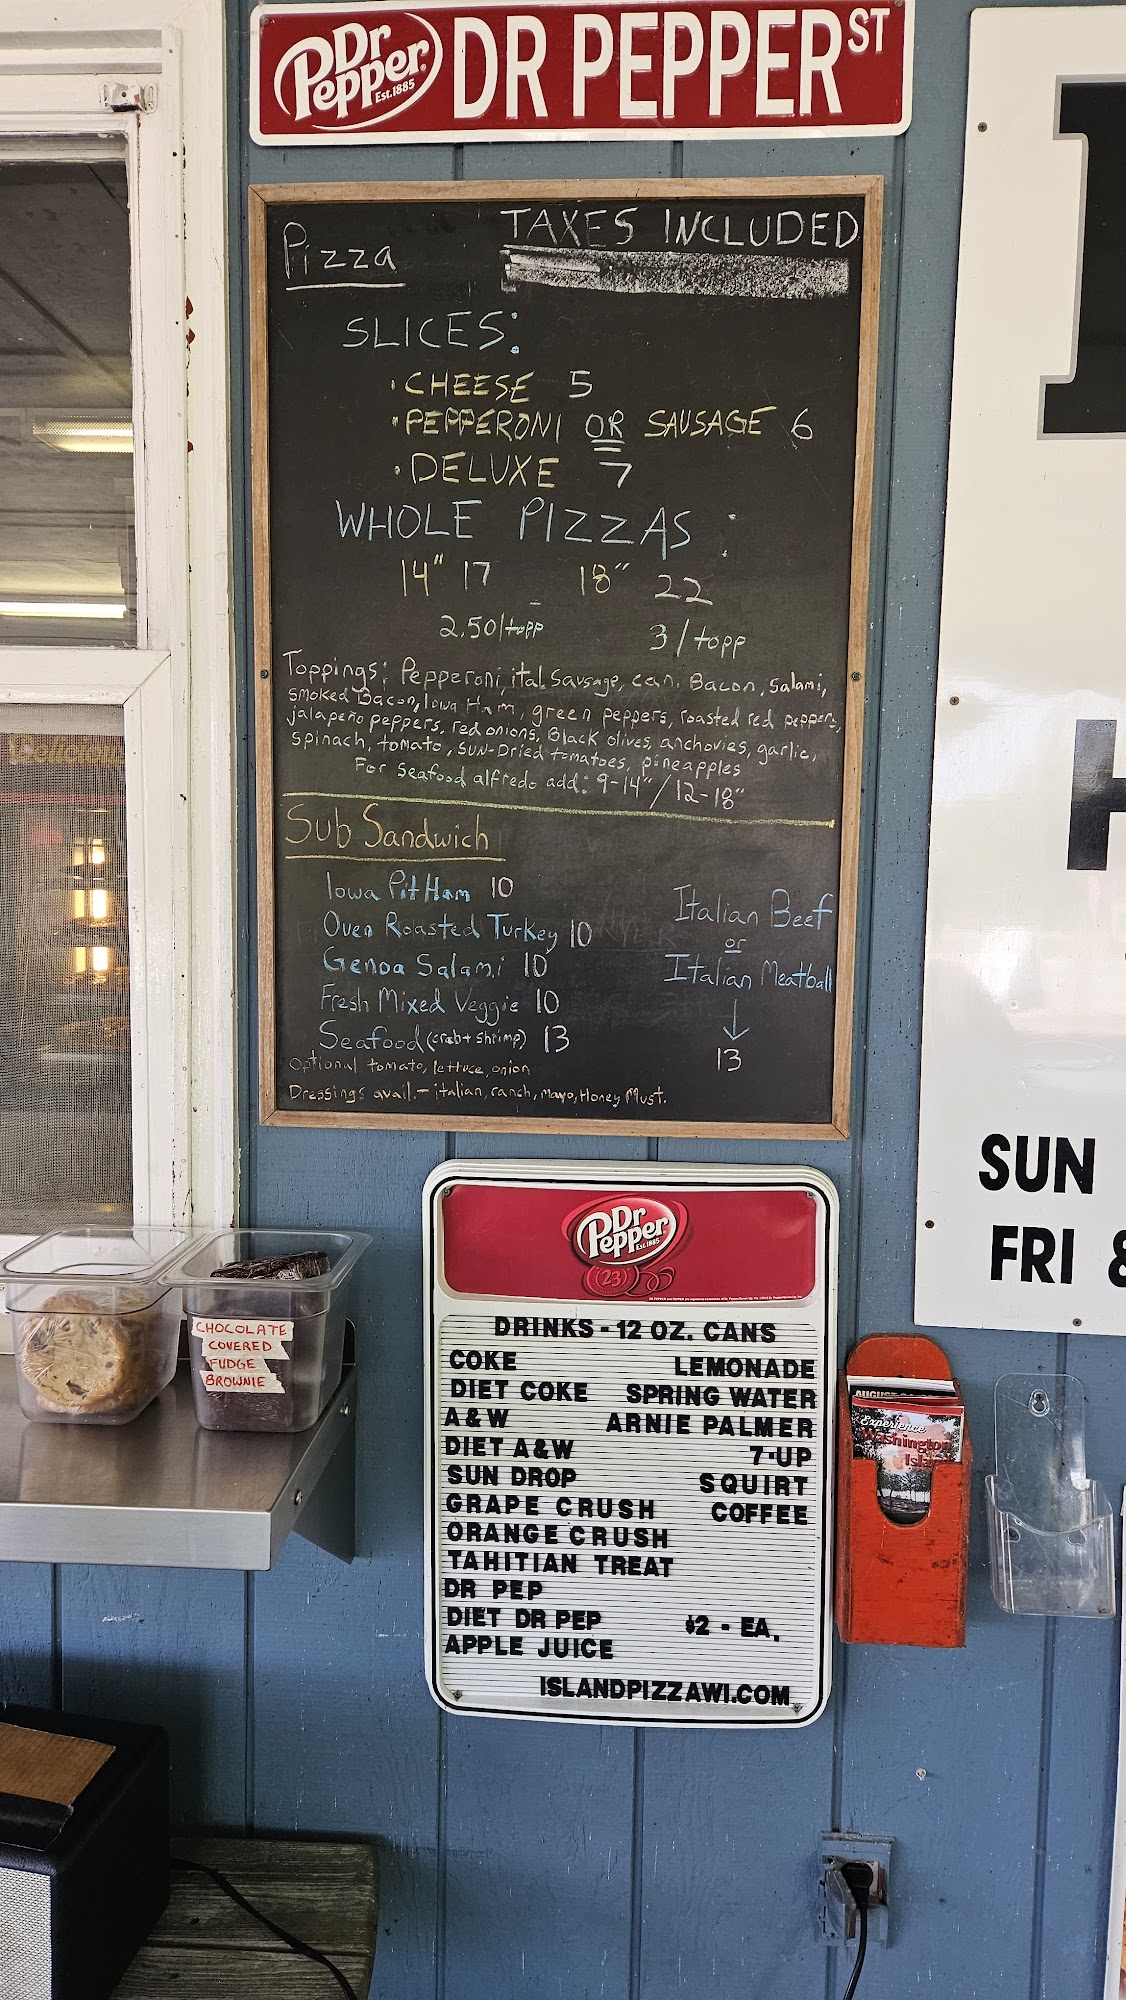 Dr Pepper Est.1885 DR PEPPER ST
Pizza
TAXES INCLUDED
SLICES:
• CHEESE 5
• PEPPERONI OR SAUSAGE 6
• DELUXE 7
WHOLE PIZZAS:
14" 17 18" 22
2.50/topp 3/topp
Toppings: Pepperoni, ital. Sausage, can. Bacon, Salami,
Smoked Bacon, Iowa Ham, green peppers, roasted red peppers,
jalapeño peppers, red onions, Black olives, anchovies, garlic,
spinach, tomato, SUN-Dried tomatoes, pineapples
For Seafood alfredo add: 9-14" / 12-18"
Sub Sandwich
Iowa Pit Ham 10
Oven Roasted Turkey 10
Genoa Salami 10
Fresh Mixed Veggie 10
Seafood (crab + shrimp) 13
Italian Beef
or
Italian Meatball
13
Optional tomato, lettuce, onion
Dressings avail. - italian, ranch, Mayo, Honey Must.
Dr Pepper Est.1885
23
DRINKS - 12 OZ. CANS
COKE
DIET COKE
A&W
DIET A&W
SUN DROP
GRAPE CRUSH
ORANGE CRUSH
TAHITIAN TREAT
DR PEP
DIET DR PEP
APPLE JUICE
LEMONADE
SPRING WATER
ARNIE PALMER
7-UP
SQUIRT
COFFEE
$2 - EA.
ISLANDPIZZAWI.COM
CHOCOLATE
COVERED
FUDGE
BROWNIE
H
SUN
FRI &
AUGUST
Experience
Washington